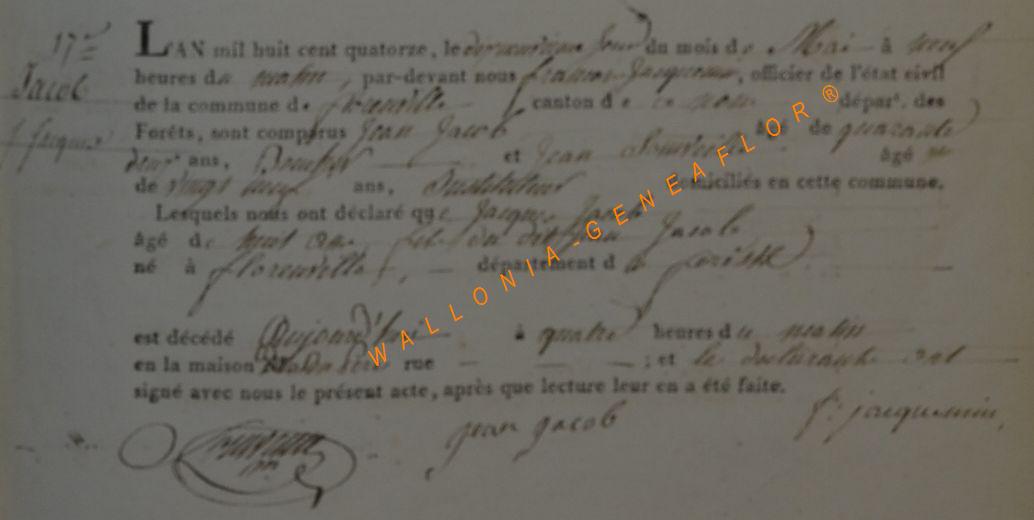 17e
Jacob
jacques
LAN mil huit cent quatorze, le jour du mois de Mai à neuf
heures du matin, par-devant nous françois Jacquemin, officier de l'état civil
de la commune de florenville canton d e ce nom dépar. des
Forêts, sont comparus Jean Jacob âgé de quarante
deux ans, et Jean âgé
de vingt neuf ans, Instituteur domiciliés en cette commune.
Lesquels nous ont déclaré que Jacques Jacob
âgé de huit ans, fils du dit Jean Jacob
né à florenville, département d
est décédé Aujourd'hui à quatre heures du matin
en la maison rue ; et le déclarants ont
signé avec nous le présent acte, après que lecture leur en a été faite.
jean jacob f: jacquemin
WALLONIA-GENEAFLOR ®